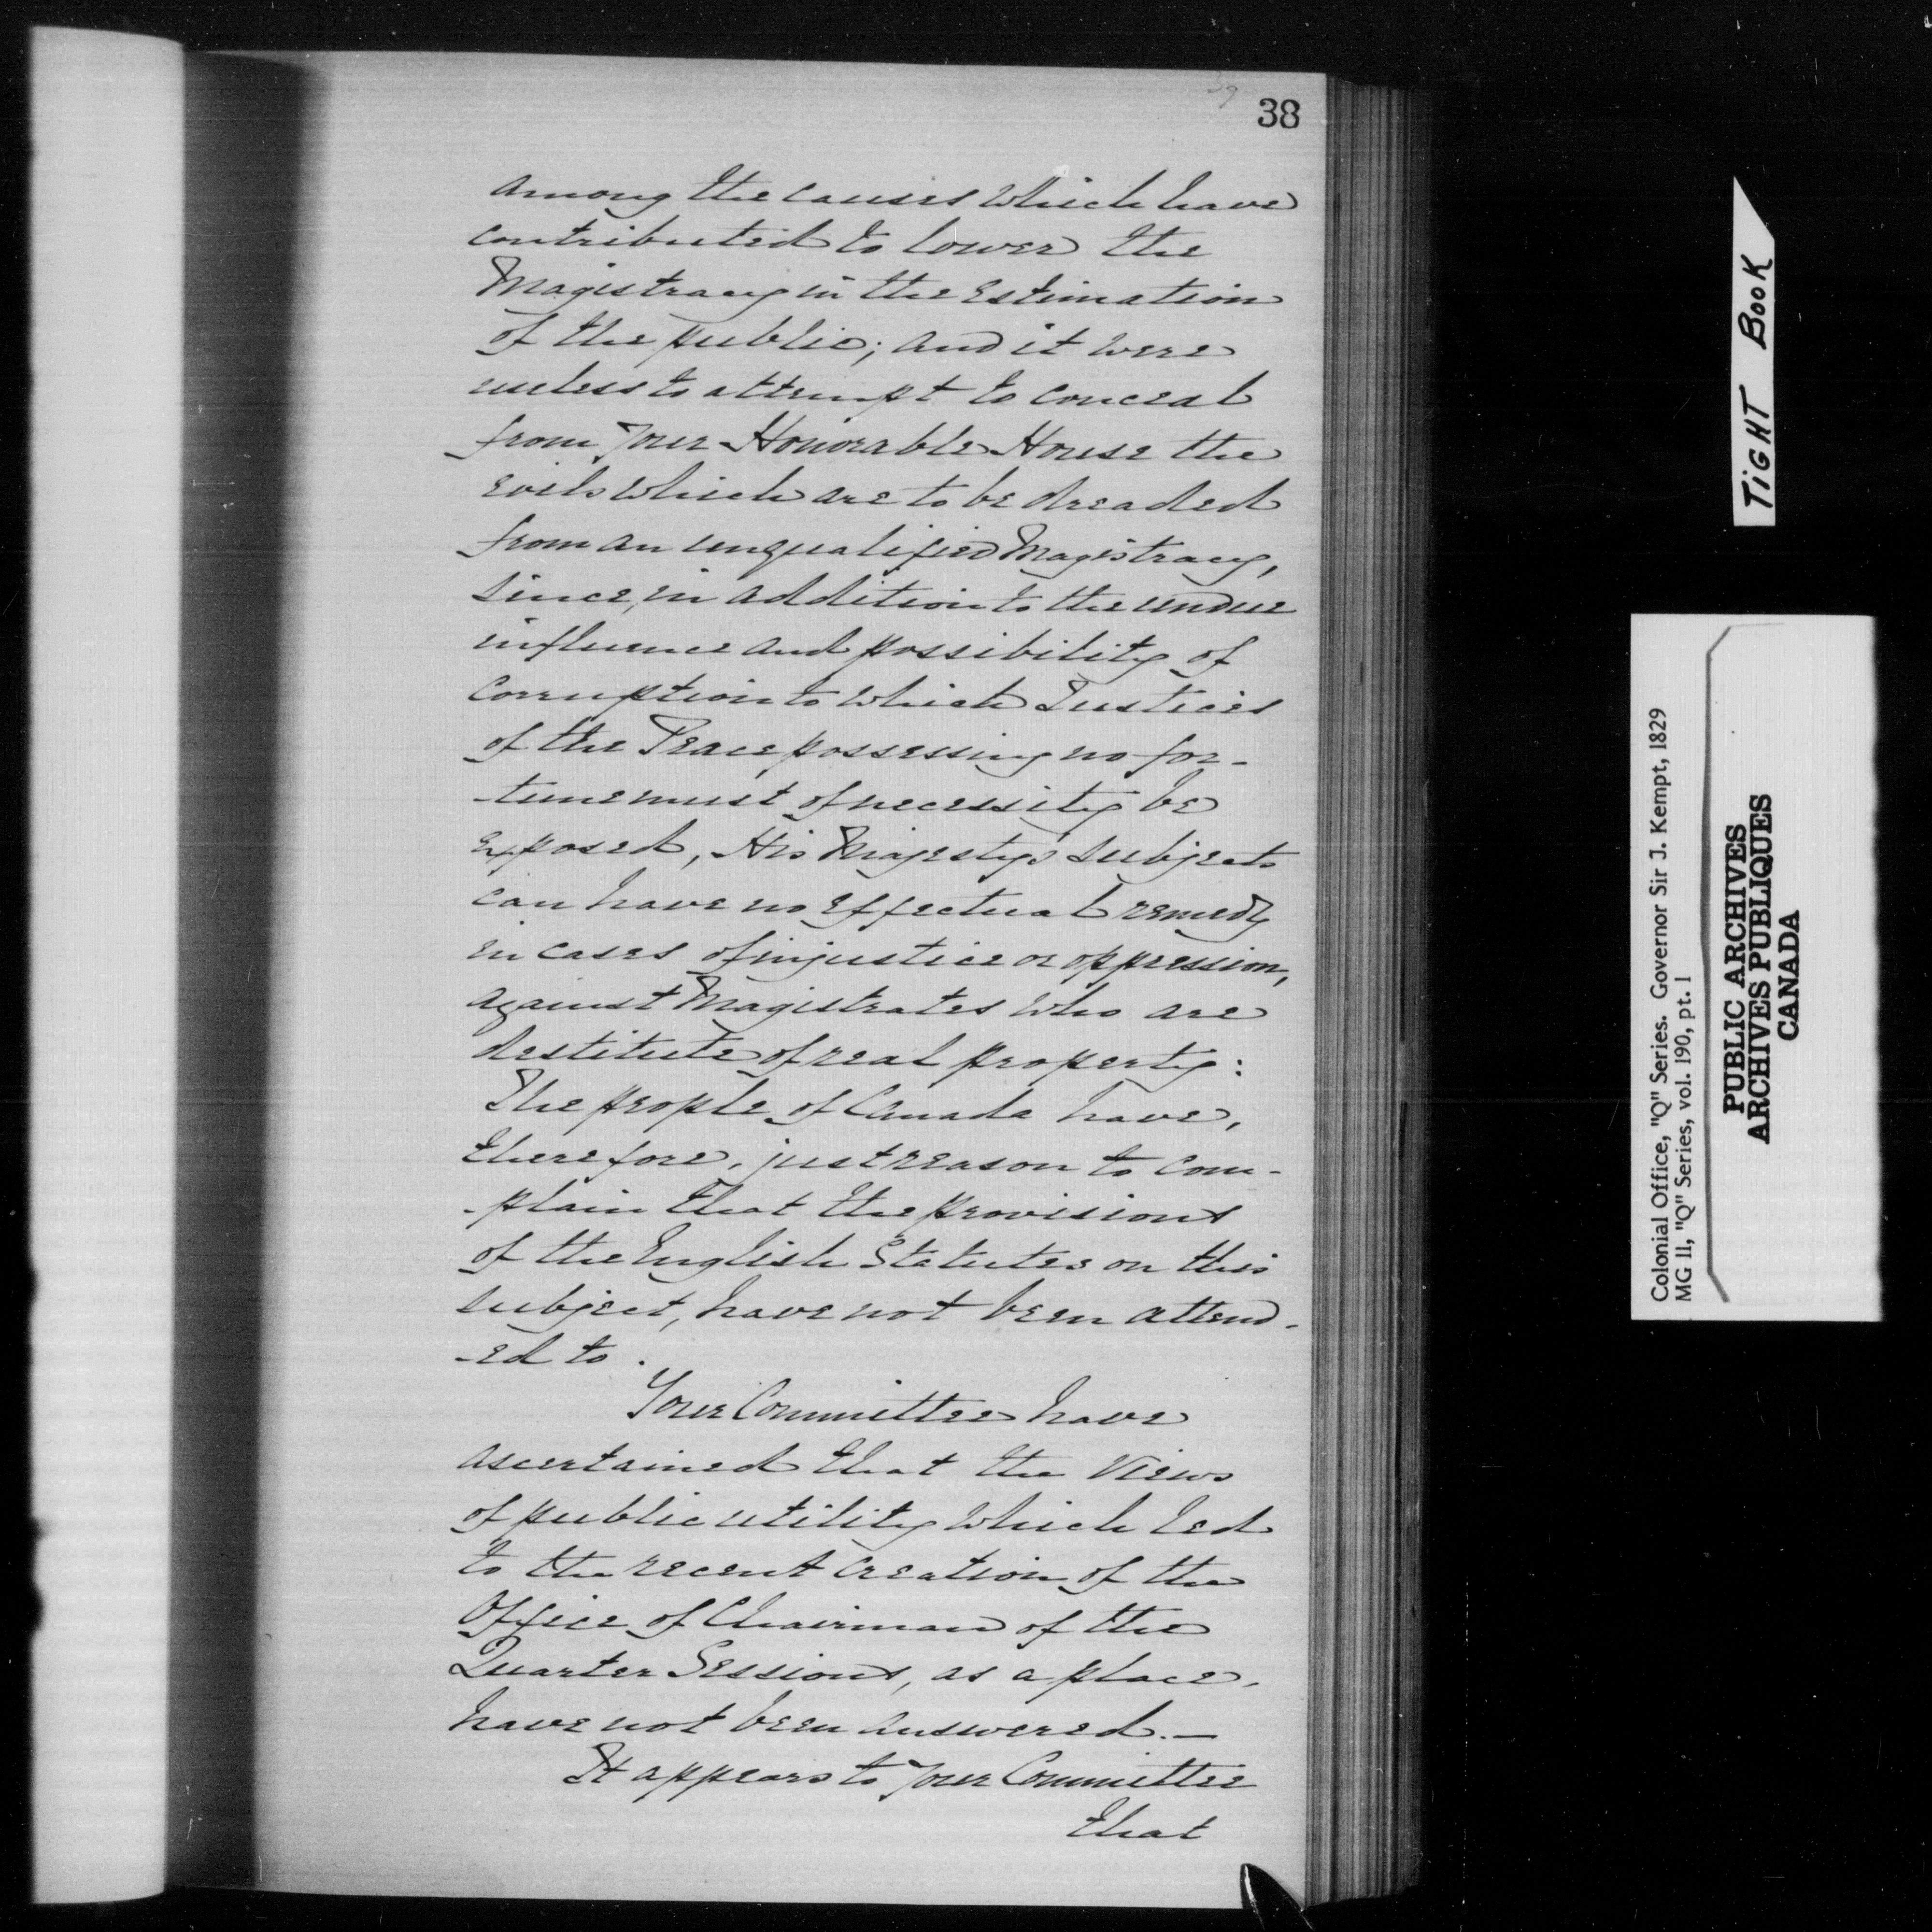 38
among the causes which have
contributed to lower the
Magistracy in the estimation
of the public; and it were
useless to attempt to conceal
from your Honorable House the
evils which are to be dreaded
from an unqualified Magistracy,
since, in addition to the undue
influence and possibility of
corruption to which Justices
of the Peace possessing no for-
-tune must of necessity be
exposed, His Majesty's subjects
can have no effectual remedy
in cases of injustice or oppression,
against Magistrates who are
destitute of real property:
The people of Canada have,
therefore, just reason to com-
-plain that the provisions
of the English Statutes on this
subject, have not been attend-
-ed to.
Your Committee have
ascertained that the views
of public utility which led
to the recent creation of the
Office of Chairman of the
Quarter Sessions, as a place,
have not been answered.—
It appears to your Committee
that
TIGHT BOOK
Colonial Office, "Q" Series. Governor Sir J. Kempt, 1829
MG 11, "Q" Series, vol. 190, pt. 1
PUBLIC ARCHIVES
ARCHIVES PUBLIQUES
CANADA